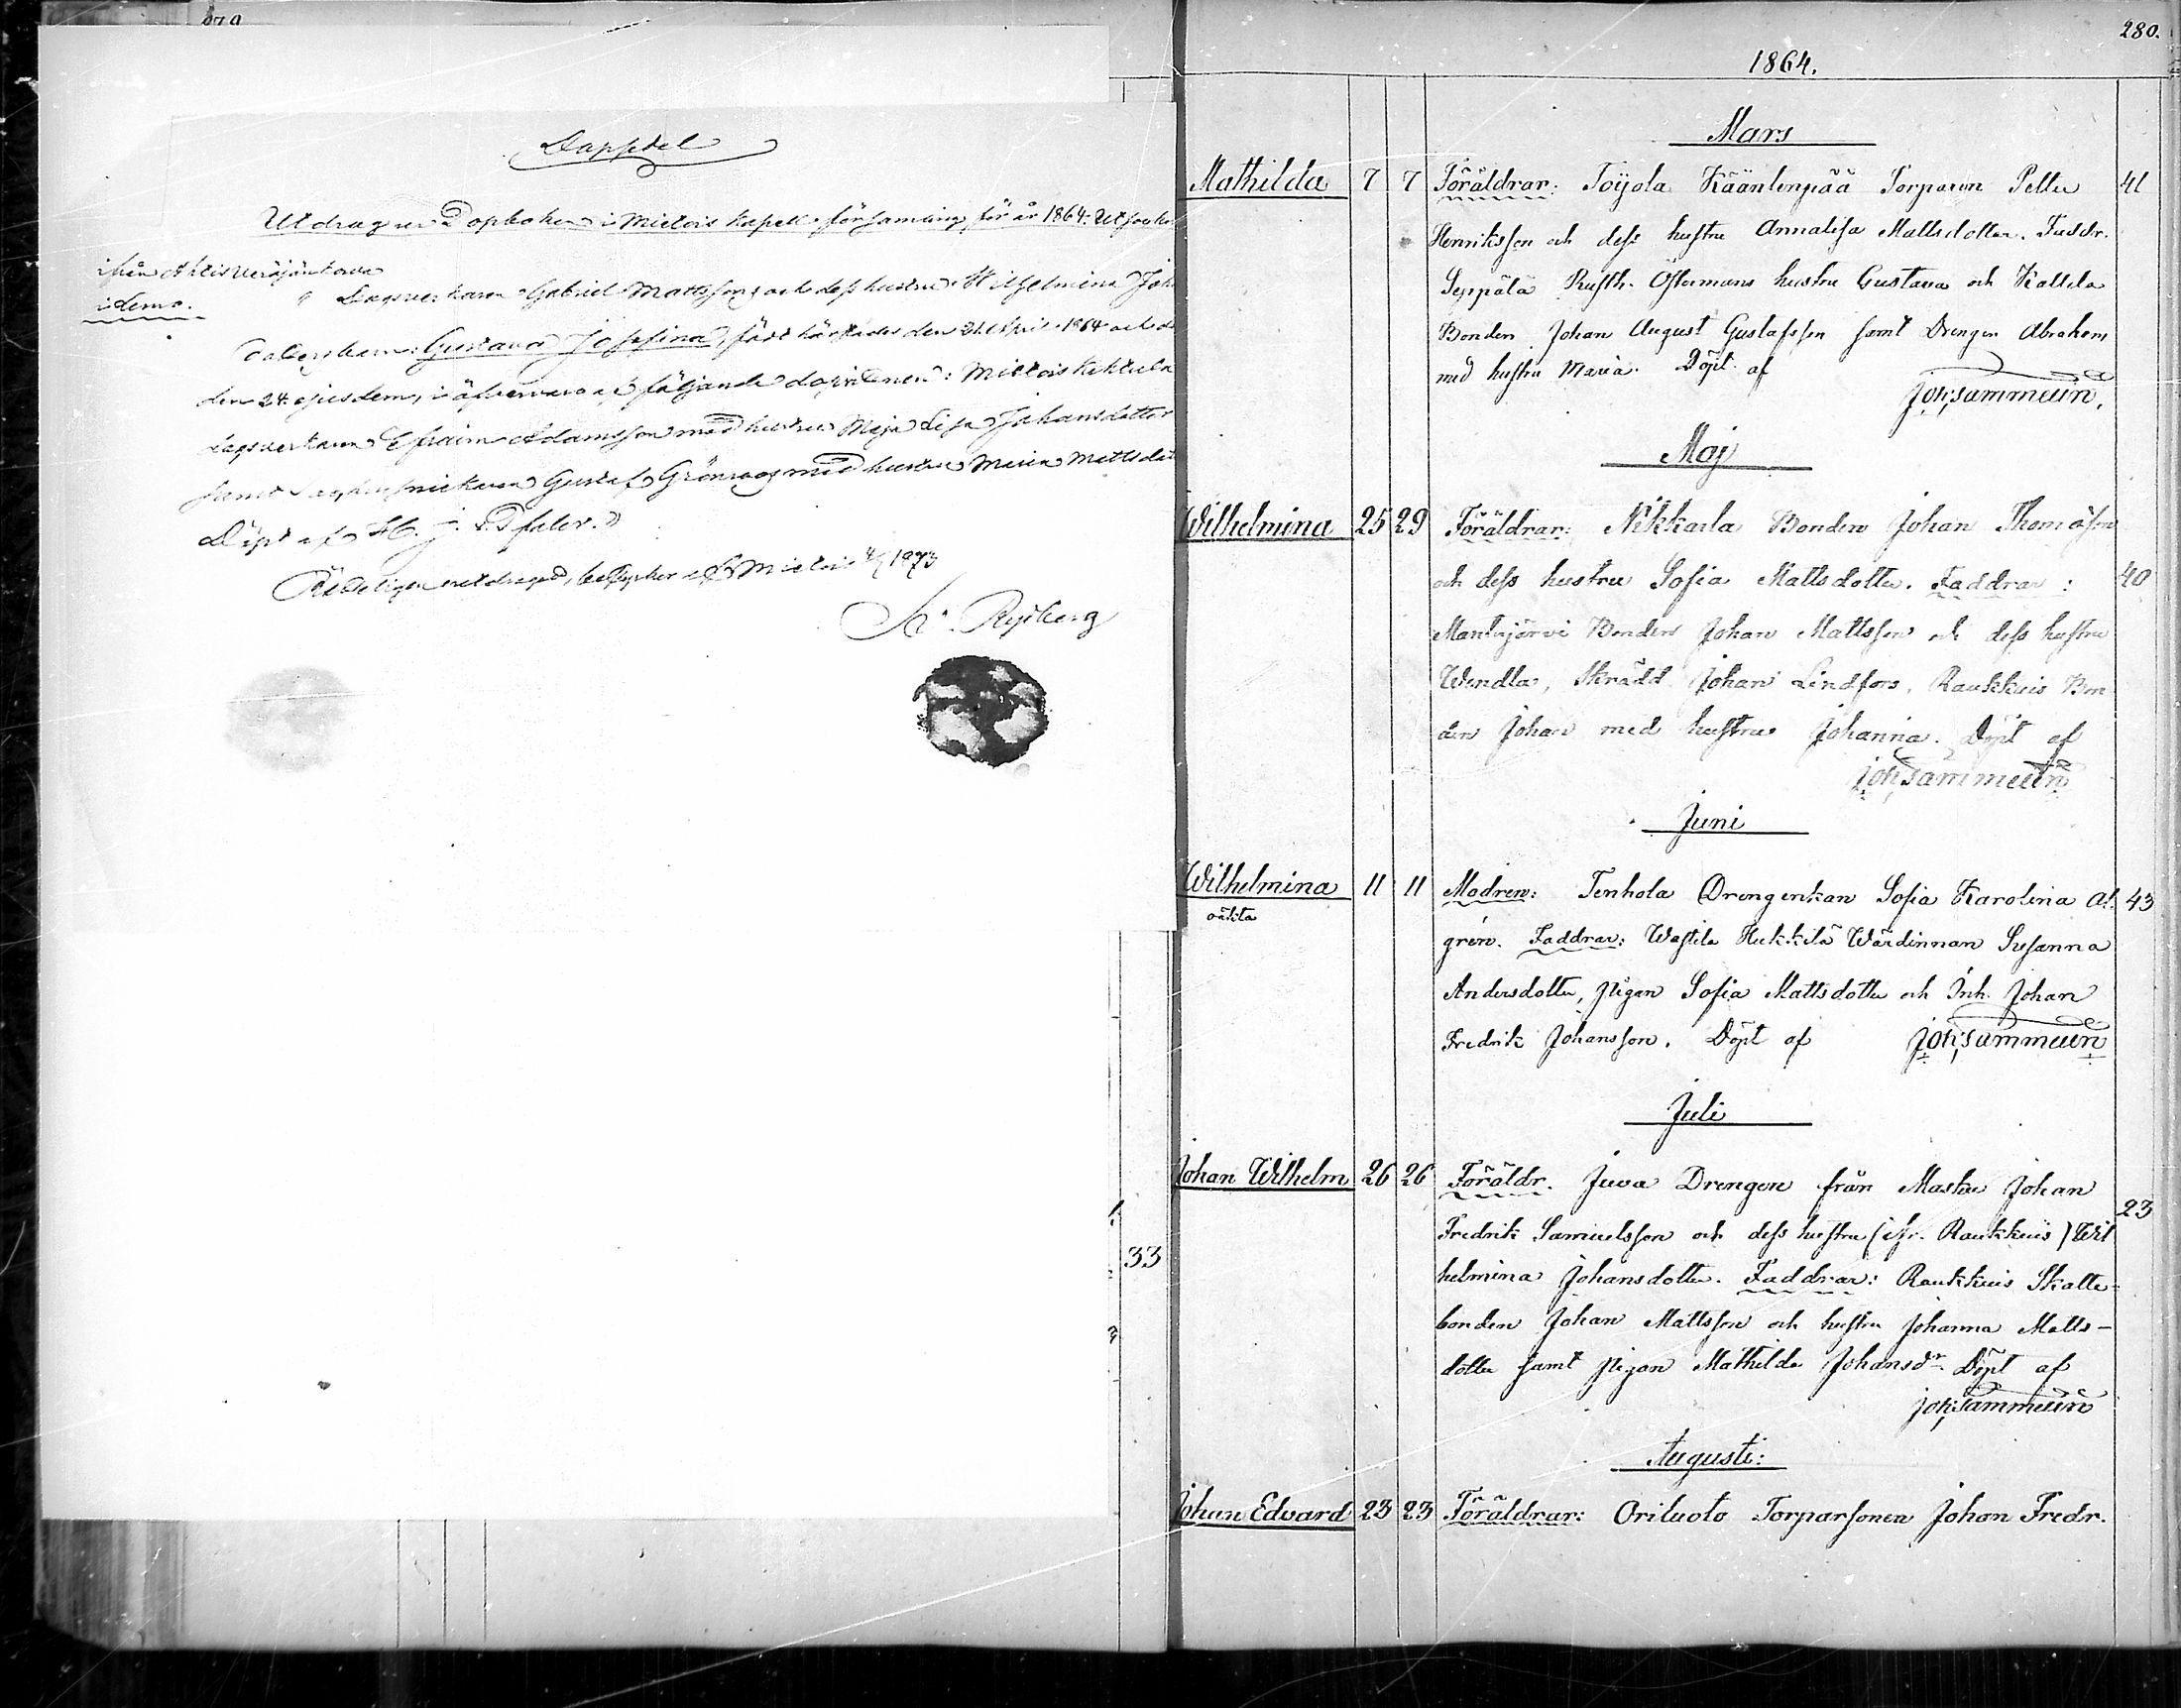 279
Dapsedel
Utdrag ur Dopboken i Mietois kapell-församling för år 1864.
ifrån
i Lemo.
Dagsverkaren Gabriel Mattsson och dess hustru Wilhelmina Joh
Gustava Josefina, född härstädes den 21 April 1864 och
den 24 ejusdem, i öfvervaro af följande dopvittnen: Mietois
dagsverkaren Efraim Adamsson med hustru Maja Lisa Johansdotter
samt Gustaf Grönroos med hustru Maria Mattsdot
Döpt af
Rydberg
33
280.
1864.
Mars
Mathilda 7 7 Föräldrar: Toijola Käänlenpää Torparen Petter 41
Henriksson och dess hustru Annalisa Mattsdotter. Faddr.
Seppälä Rusth. Östermans hustru Gustava och Kallela
Bonden Johan August Gustafsson samt Drengen Abraham
med hustru Maria. Döpt af
Joh; Sammelin.
Maj
Wilhelmina 25 29 Föräldrar: Nikkarla Bonden Johan Thomasson
och dess hustru Sofia Mattsdotter. Faddrar: 40
Mantujärvi Bonden Johan Mattsson och dess hustru
Wendla, Skrädd. Johan Lindfors, Raukkuis Bon
den Johan med hustru Johanna. Döpt af
Joh; Sammelin
Juni
Wilhelmina 11 11 Modren: Tenhola Drengenkan Sofia Karolina Al- 43
oäkta
grén. Faddrar: Wastila Heikkilä Wärdinnan Susanna
Andersdotter, pigan Sofia Mattsdotter och Inh. Johan
Fredrik Johansson. Döpt af Joh; Sammelin
Juli
Johan Wilhelm 26 26 Föräldr. Juva Drengen från Masku Johan
23
Fredrik Samuelsson och dess hustru (ifr. Raukkuis) Wil
helmina Johansdotter. Faddrar: Raukkuis Skatte-
bonden Johan Mattsson och hustru Johanna Matts-
dotter samt pigan Mathilda Johansdr. Döpt af
Joh; Sammelin
Augusti:
Johan Edvard 23 23 Föräldrar: Oriluoto Torparsonen Johan Fredr.